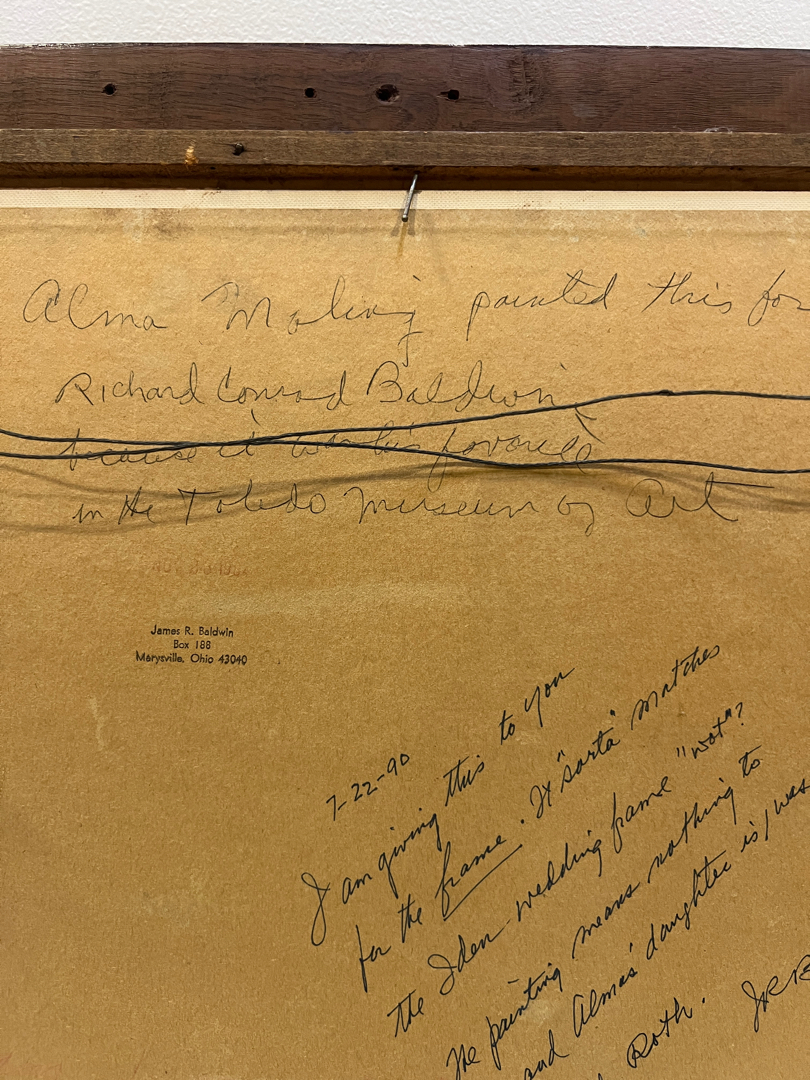 Alma Moling painted this for
Richard Conrad Baldwin
because it was his favorite
in the Toledo Museum of Art
James R. Baldwin
Box 188
Marysville, Ohio 43040
7-22-90
I am giving this to you
for the frame. It "sorta" matches
the Iden wedding frame "wot"?
The painting means nothing to
and Almas' daughter is/was
Roth. JRB